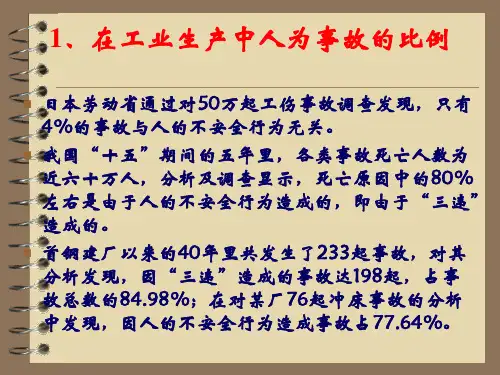 1、在工业生产中人为事故的比例
日本劳动省通过对50万起工伤事故调查发现，只有
4%的事故与人的不安全行为无关。
我国“十五”期间的五年里，各类事故死亡人数为
近六十万人，分析及调查显示，死亡原因中的80%
左右是由于人的不安全行为造成的，即由于“三违”
造成的。
首钢建厂以来的40年里共发生了233起事故，对其
分析发现，因“三违”造成的事故达198起，占事
故总数的84.98%；在对某厂76起冲床事故的分析
中发现，因人的不安全行为造成事故占77.64%。